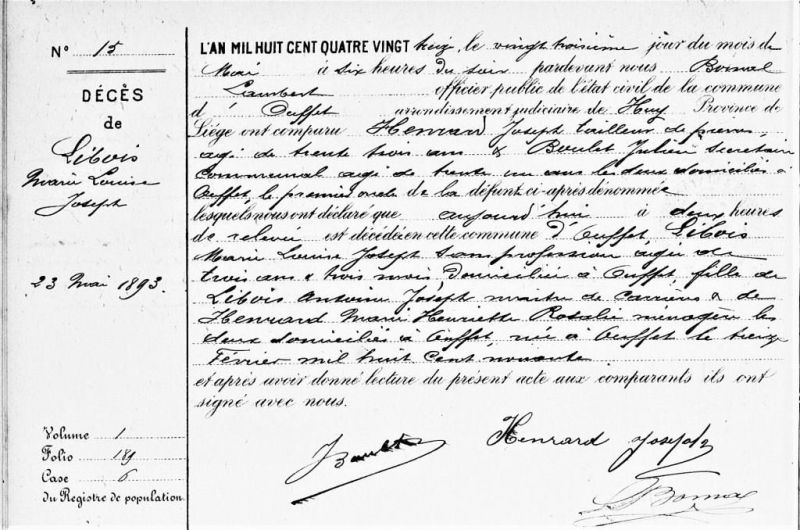 N° 15
DÉCÈS
de
Libois
Marie Louise
Joseph
23 Mai 1893.
Volume 1
Folio 189
Case 6
du Registre de population.
L'AN MIL HUIT CENT QUATRE VINGT treize, le vingt troisième jour du mois de
Mai à six heures du soir pardevant nous Bomal
Lambert officier public de l'état civil de la commune
d' Ouffet arrondissement judiciaire de Huy Province de
Liége ont comparu Henrard Joseph tailleur de pierres,
agé de trente trois ans & Boulet Julien Secretaire
Communal agé de trente un ans les deux domiciliés à
Ouffet, le premier oncle de la défunt ci-après dénommée
lesquels nous ont déclaré que aujourd'hui à deux heures
de relevée est décédé en cette commune d'Ouffet, Libois
Marie Louise Joseph sans profession agée de
trois ans & trois mois, domiciliée à Ouffet, fille de
Libois Antoine Joseph maitre de carrières & de
Henrard Marie Henriette Rosalie menagère les
deux domiciliés à Ouffet, née à Ouffet le treize
Février mil huit cent nonante
et après avoir donné lecture du présent acte aux comparants ils ont
signé avec nous.
J Boulet Henrard Joseph
L Bomal